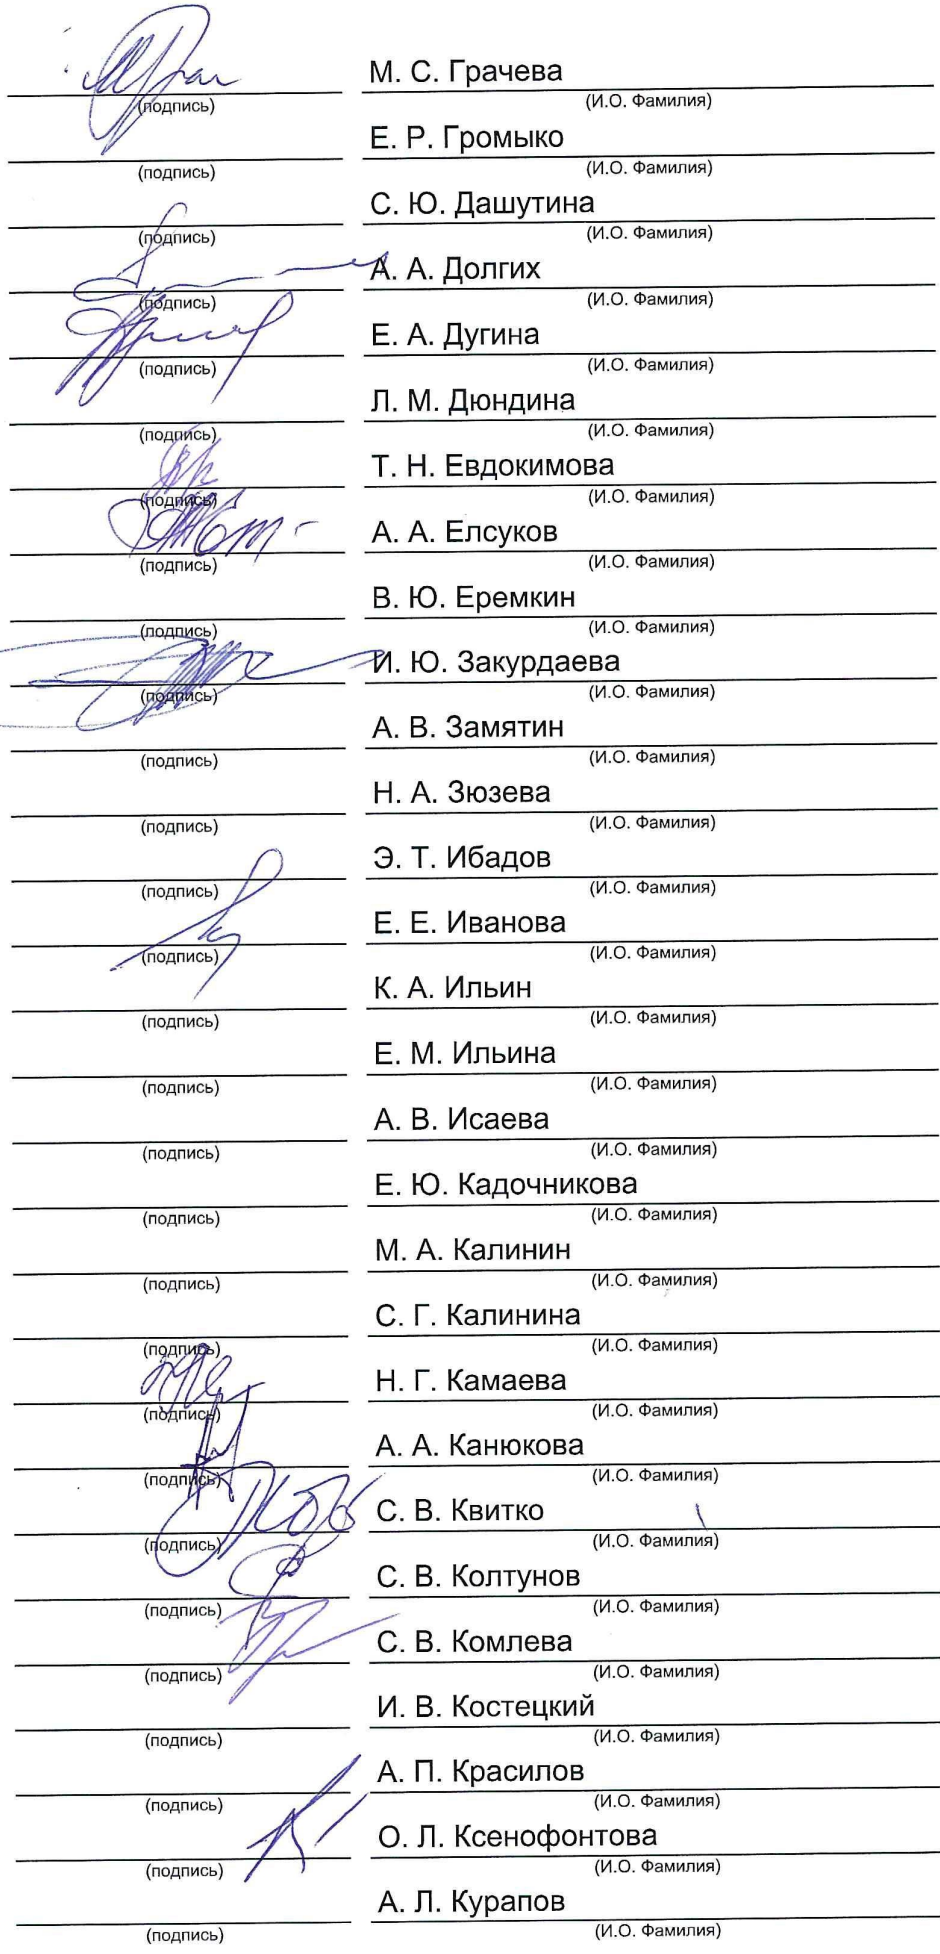 М. С. Грачева
(подпись) (И.О. Фамилия)
Е. Р. Громыко
(подпись) (И.О. Фамилия)
С. Ю. Дашутина
(подпись) (И.О. Фамилия)
А. А. Долгих
(подпись) (И.О. Фамилия)
Е. А. Дугина
(подпись) (И.О. Фамилия)
Л. М. Дюндина
(подпись) (И.О. Фамилия)
Т. Н. Евдокимова
(подпись) (И.О. Фамилия)
А. А. Елсуков
(подпись) (И.О. Фамилия)
В. Ю. Еремкин
(подпись) (И.О. Фамилия)
И. Ю. Закурдаева
(подпись) (И.О. Фамилия)
А. В. Замятин
(подпись) (И.О. Фамилия)
Н. А. Зюзева
(подпись) (И.О. Фамилия)
Э. Т. Ибадов
(подпись) (И.О. Фамилия)
Е. Е. Иванова
(подпись) (И.О. Фамилия)
К. А. Ильин
(подпись) (И.О. Фамилия)
Е. М. Ильина
(подпись) (И.О. Фамилия)
А. В. Исаева
(подпись) (И.О. Фамилия)
Е. Ю. Кадочникова
(подпись) (И.О. Фамилия)
М. А. Калинин
(подпись) (И.О. Фамилия)
С. Г. Калинина
(подпись) (И.О. Фамилия)
Н. Г. Камаева
(подпись) (И.О. Фамилия)
А. А. Канюкова
(подпись) (И.О. Фамилия)
С. В. Квитко
(подпись) (И.О. Фамилия)
С. В. Колтунов
(подпись) (И.О. Фамилия)
С. В. Комлева
(подпись) (И.О. Фамилия)
И. В. Костецкий
(подпись) (И.О. Фамилия)
А. П. Красилов
(подпись) (И.О. Фамилия)
О. Л. Ксенофонтова
(подпись) (И.О. Фамилия)
А. Л. Курапов
(подпись) (И.О. Фамилия)